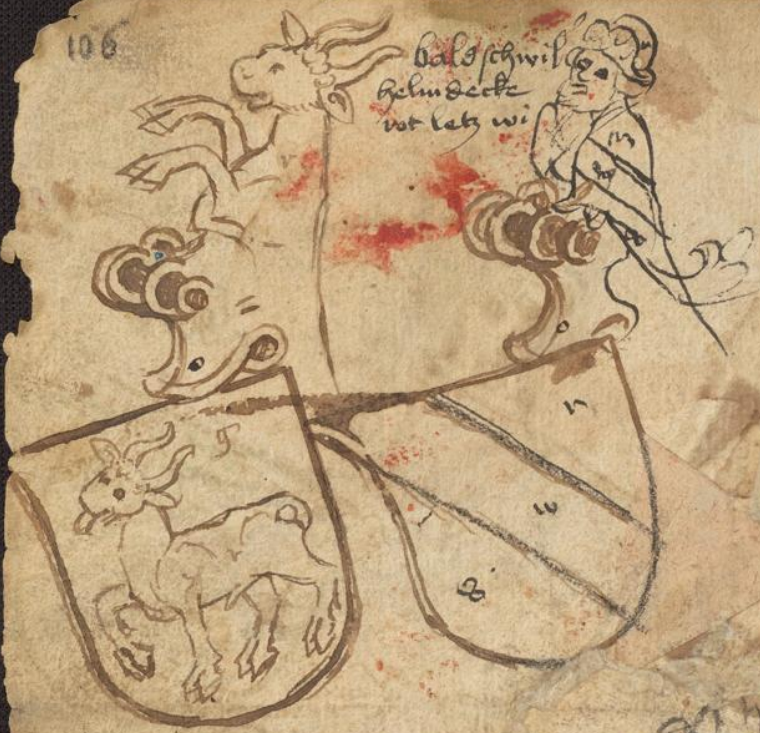 106
baldschwil
helmdecke
rot letz wi
g
r
w